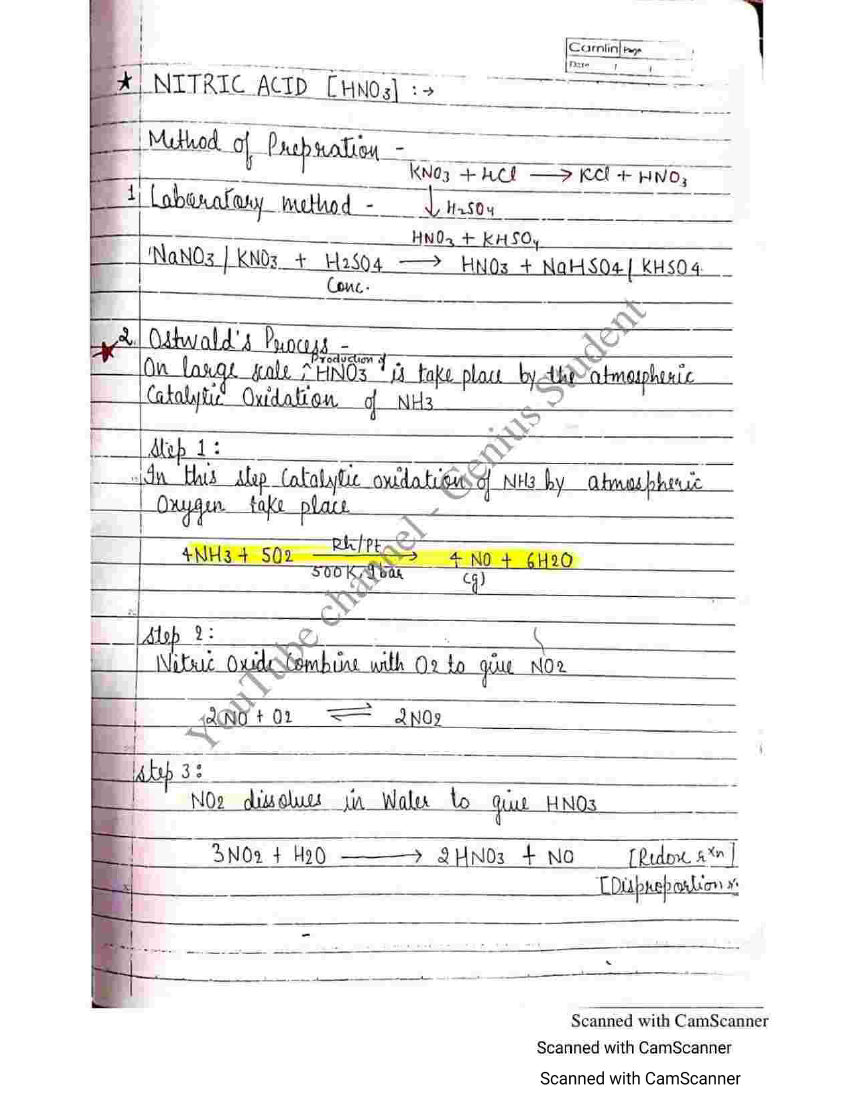 Camlin Page
Date / /
★ NITRIC ACID [HNO3] :→
Method of Prepration -
KNO3 + HCl ⟶ KCl + HNO3
1 Laboratory method - ↓ H2SO4
HNO3 + KHSO4
NaNO3 / KNO3 + H2SO4 ⟶ HNO3 + NaHSO4 / KHSO4
Conc.
★ 2. Ostwald's Process -
On large scale ^Production of HNO3 is take place by the atmospheric
Catalytic Oxidation of NH3
Step 1:
In this step Catalytic oxidation of NH3 by atmospheric
Oxygen take place
4NH3 + 5O2 ⟶ 4 NO + 6H2O
Rh/Pt
500K, 9bar (g)
Step 2:
Nitric Oxide Combine with O2 to give NO2
2NO + O2 ⇌ 2NO2
Step 3:
NO2 dissolves in Water to give HNO3
3NO2 + H2O ⟶ 2HNO3 + NO [Redox rxn]
[Disproportion
YouTube channel - Genius Student
Scanned with CamScanner
Scanned with CamScanner
Scanned with CamScanner